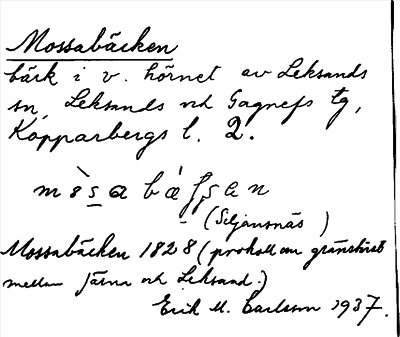 Mossabäcken
bäck i v. hörnet av Leksands
sn, Leksands och Gagnefs tg,
Kopparbergs l. 2.
(Siljansnäs)
Mossabäcken 1828 (protokoll om gränstvist
mellan Järna och Leksand.)
Erik M. Carlsson 1937.